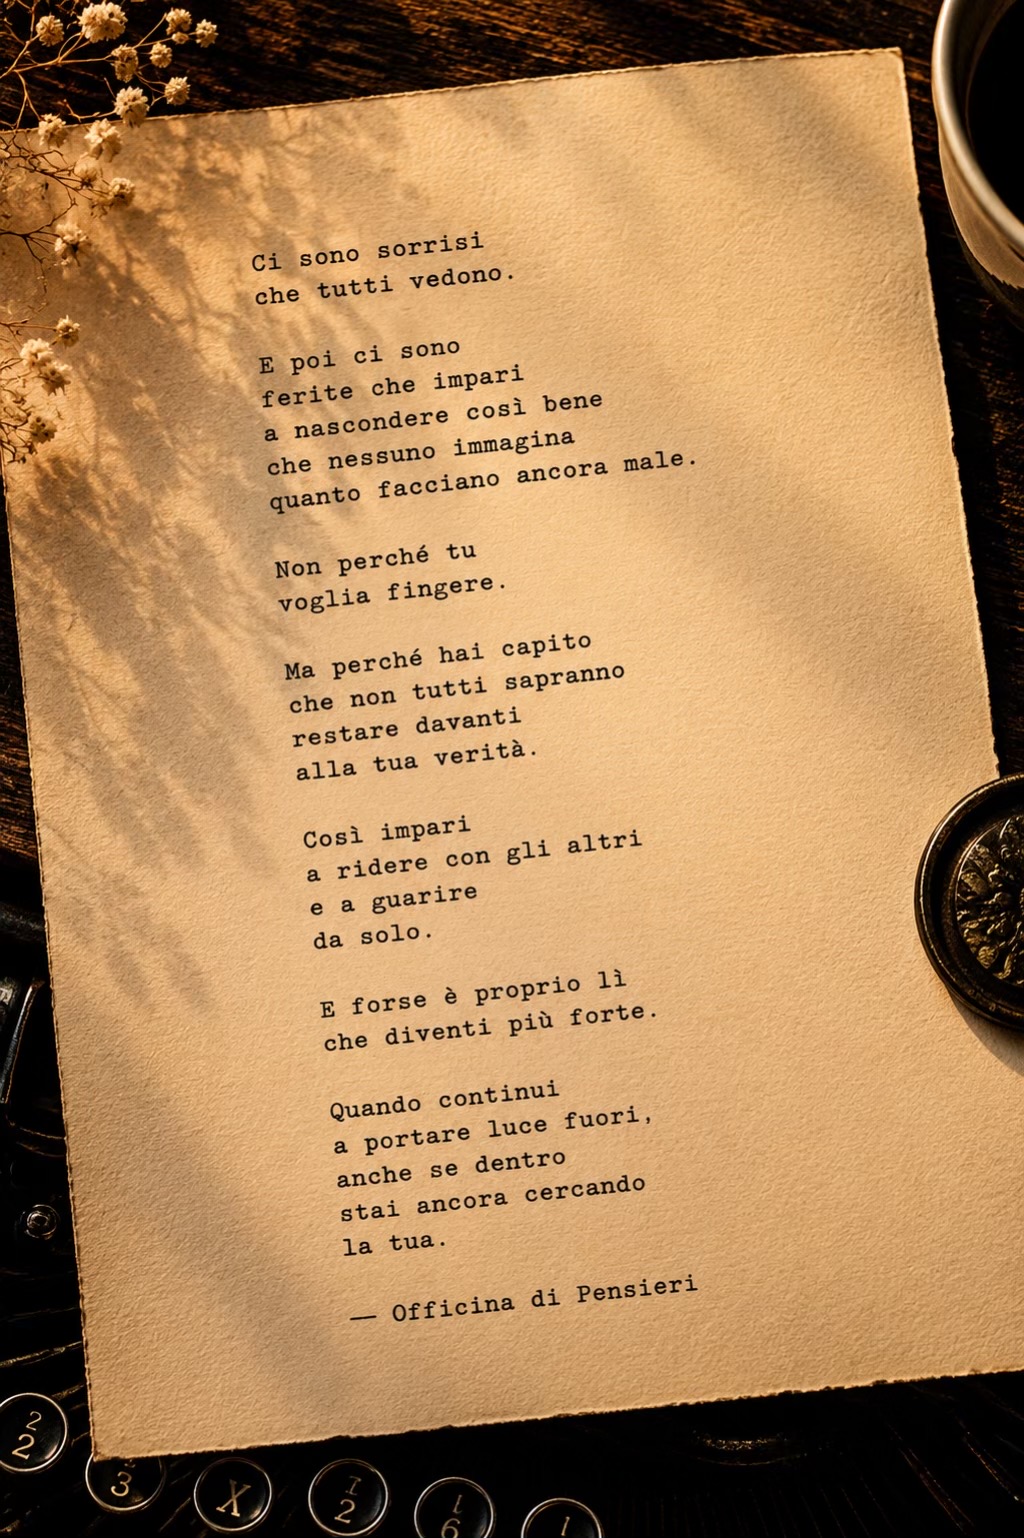 Ci sono sorrisi
che tutti vedono.
E poi ci sono
ferite che impari
a nascondere così bene
che nessuno immagina
quanto facciano ancora male.
Non perché tu
voglia fingere.
Ma perché hai capito
che non tutti sapranno
restare davanti
alla tua verità.
Così impari
a ridere con gli altri
e a guarire
da solo.
E forse è proprio lì
che diventi più forte.
Quando continui
a portare luce fuori,
anche se dentro
stai ancora cercando
la tua.
— Officina di Pensieri
2
2
3
X
1
2
1
6
1